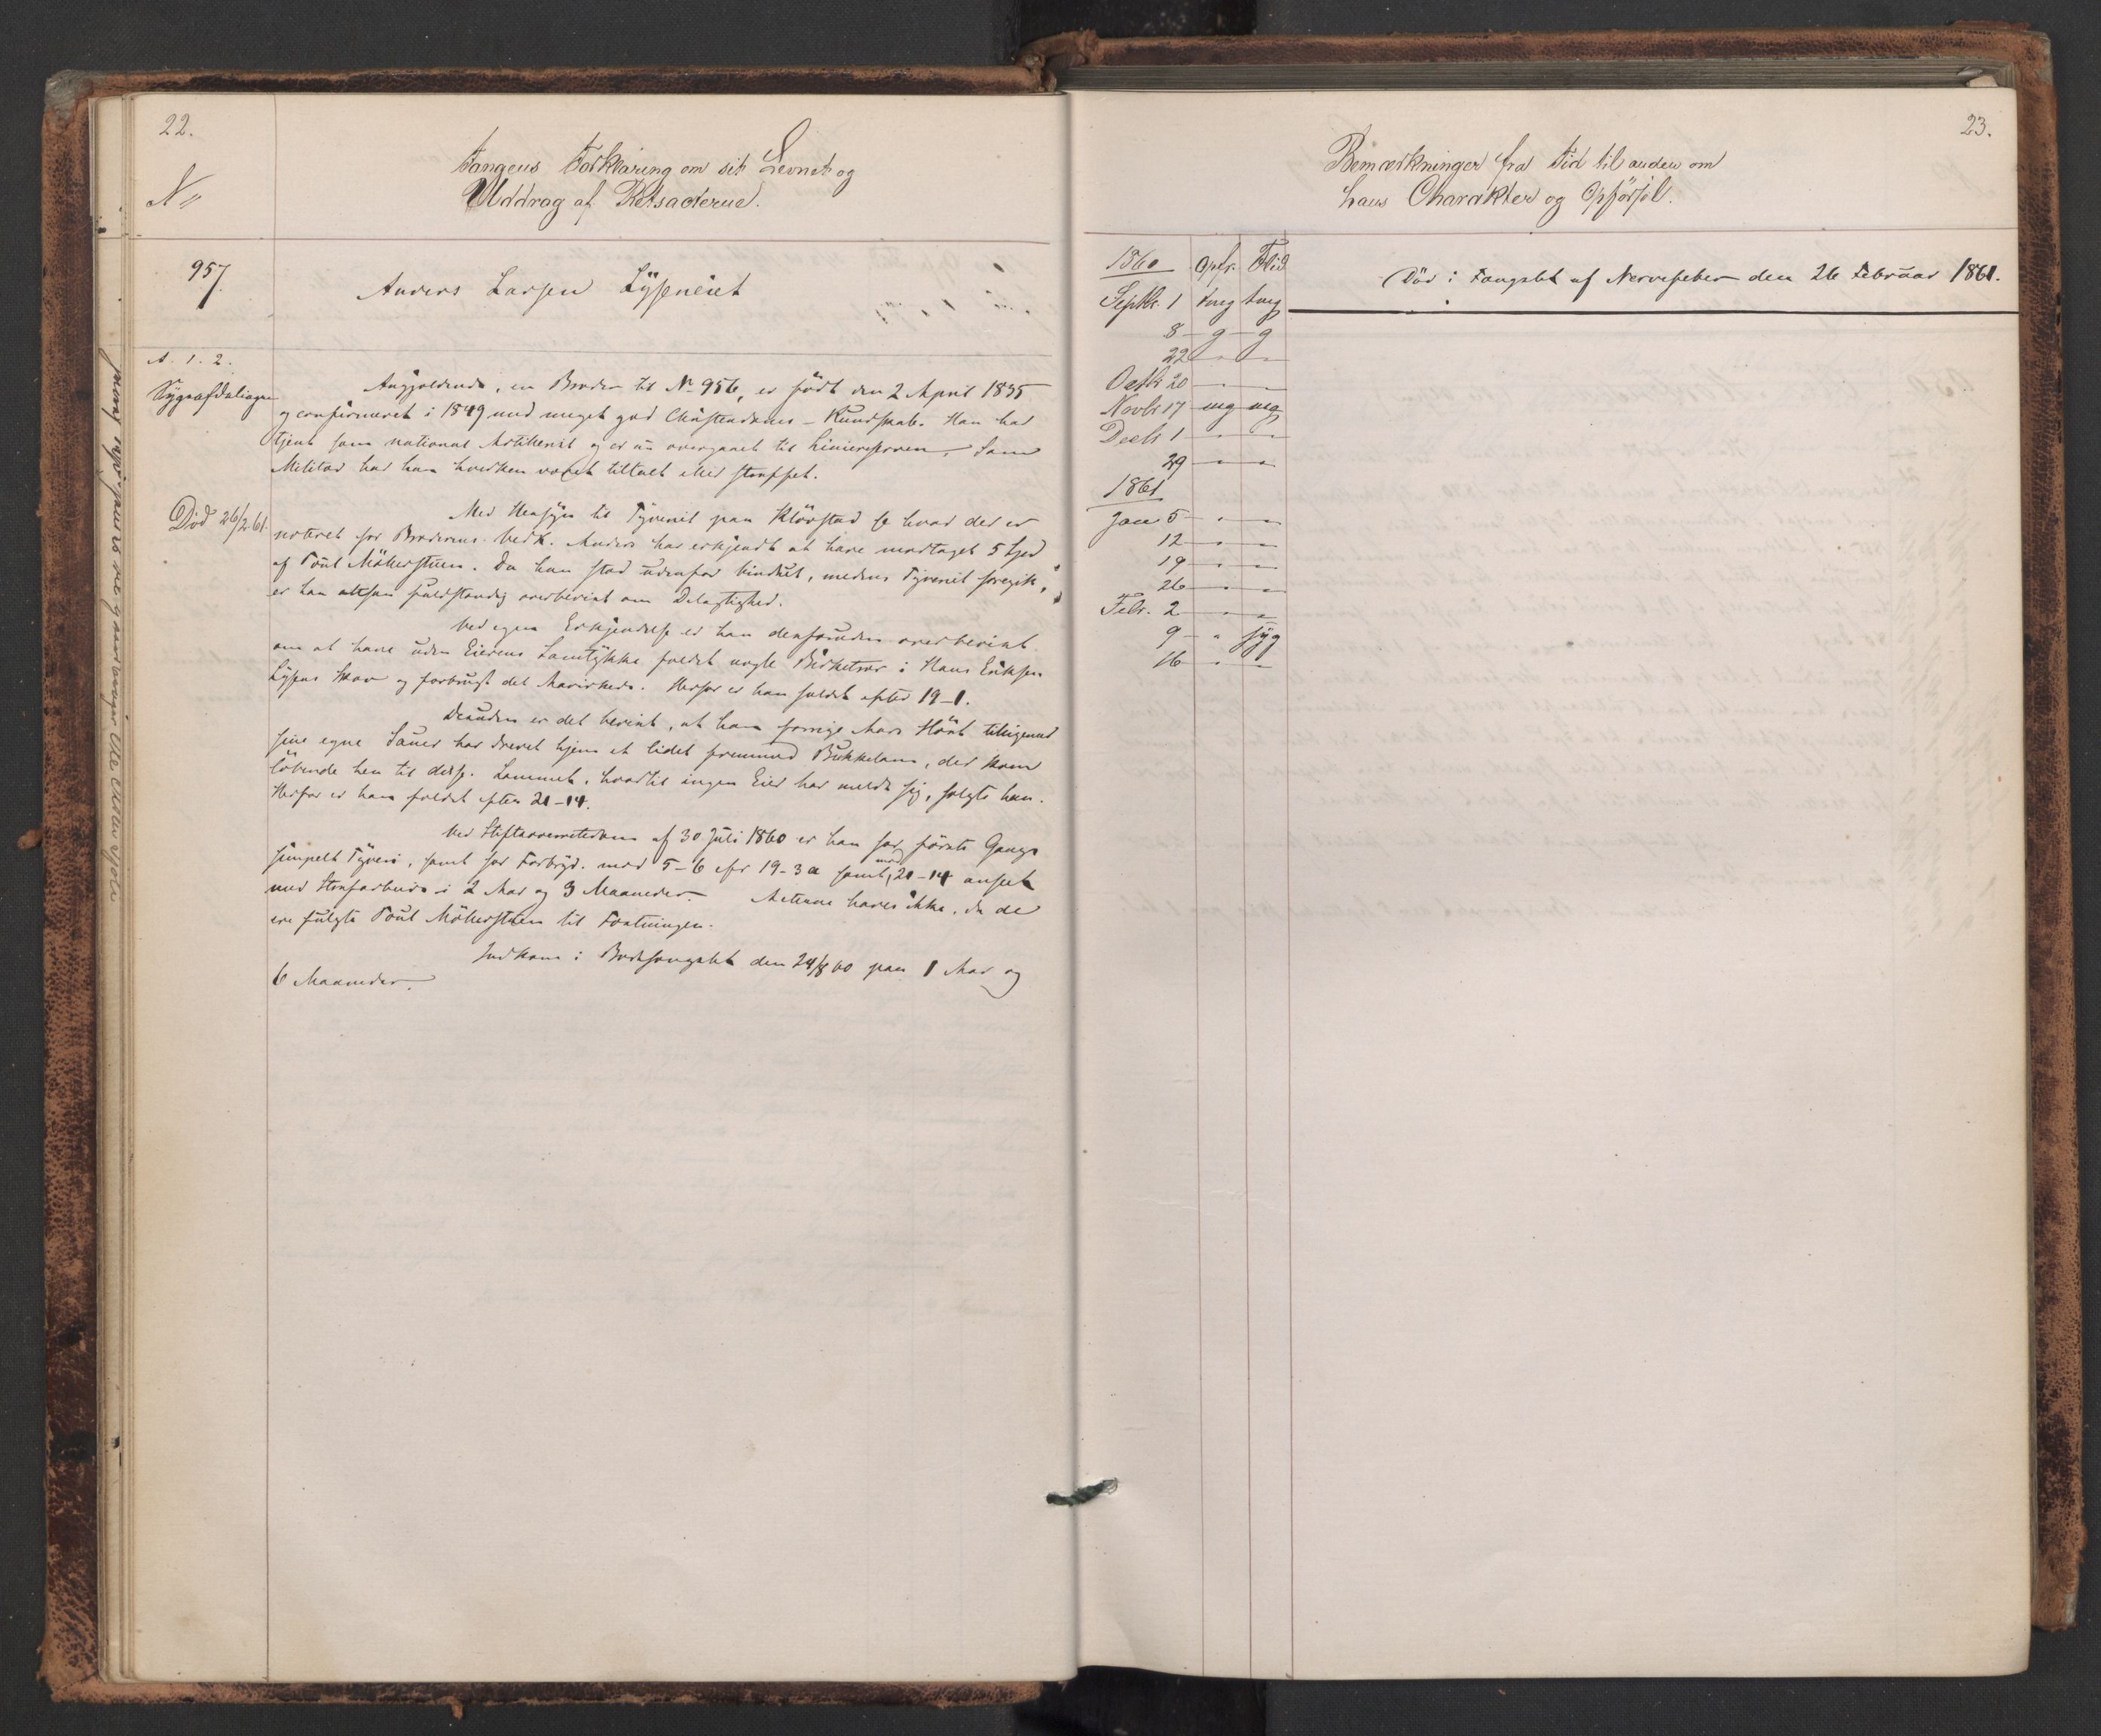 22.
No
Fangens Forklaring om sit Levnet og
Uddrag af Retsacterne.
957.
Anders Larsen Lÿseneiet
A. 1. 2.
Sygeafdelingen
Angjældende, en Broder til No 956, er födt den 2 April 1835
og confirmeret i 1849 med meget god Christendoms-Kundskab. Han har
tjent som national Artillerist og er nu overgaaet til Linieresserven. Som
Militær har han hverken været tiltalt eller straffet.
Död 26/2.61.
Med Hensyn til Tyveriet paa Klövstad se hvad der er
noteret for Broderens Vedk. Anders har erkjendt at have modtaget 5 Spd
af Poul Möllerstuen. Da han stod udenfor Vinduet, medens Tyveriet foregik,
er han altsaa fuldstændig overbevist om Delagtighed.
Ved egen Erkjendelse er han desforuden overbevist
om at have uden Eierens Samtykke fældet nogle Birketrær i Hans Eriksen
Lysens Skov og forbrugt det Meerskede. Herfor er han fældet efter 19-1.
Desuden er det bevist, at han forrige Aars Höst tilligemed
sine egne Sauer har drevet hjem et lidet fremmed Bukkelam, der kom
löbende hen til disse. Lammet, hvortil ingen Eier har meldt sig, solgte han.
Herfor er han fældet efter 21-14.
Ved Stiftsoverretsdom af 30 Juli 1860 er han for förste Gangs
simpelt Tyveri, samt for Forbryd. mod 5-6 cfr 19-3a samt mod 21-14 anseet
med Strafarbeide i 2 Aar og 3 Maaneder. Acterne haves ikke, da de
ere fulgte Poul Möllerstuen til Fæstningen.
Indkom i Bodsfængslet den 24/8 60 paa 1 Aar og
6 Maaneder.
23.
Bemærkninger fra Tid til anden om
hans Charakter og Opförsel.
1860 Opfr. Flid
Septbr. 1 tmg tmg
8 - g - g
22 " "
Octbr 20 " "
Novbr 17 mg mg
Decbr 1 " "
29 " "
1861
Jan. 5 " "
12 " "
19 " "
26 " "
Febr. 2 " "
9 - " syg
16 " "
Död i Fængslet af Nervefeber den 26 Februar 1861.